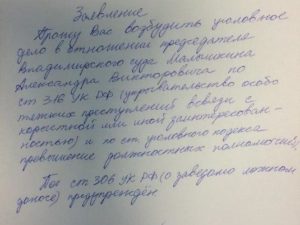 Заявление
Прошу Вас возбудить уголовное
дело в отношении председателя
Владимирского суда Малышкина
Александра Викторовича по
ст 316 УК РФ (укрывательство особо
тяжких преступлений всвязи с
корыстной или иной заинтересован-
ностью) и по ст. уголовного кодекса
превышение должностных полномочий,
По ст 306 УК РФ (о заведомо ложном
доносе) предупреждён